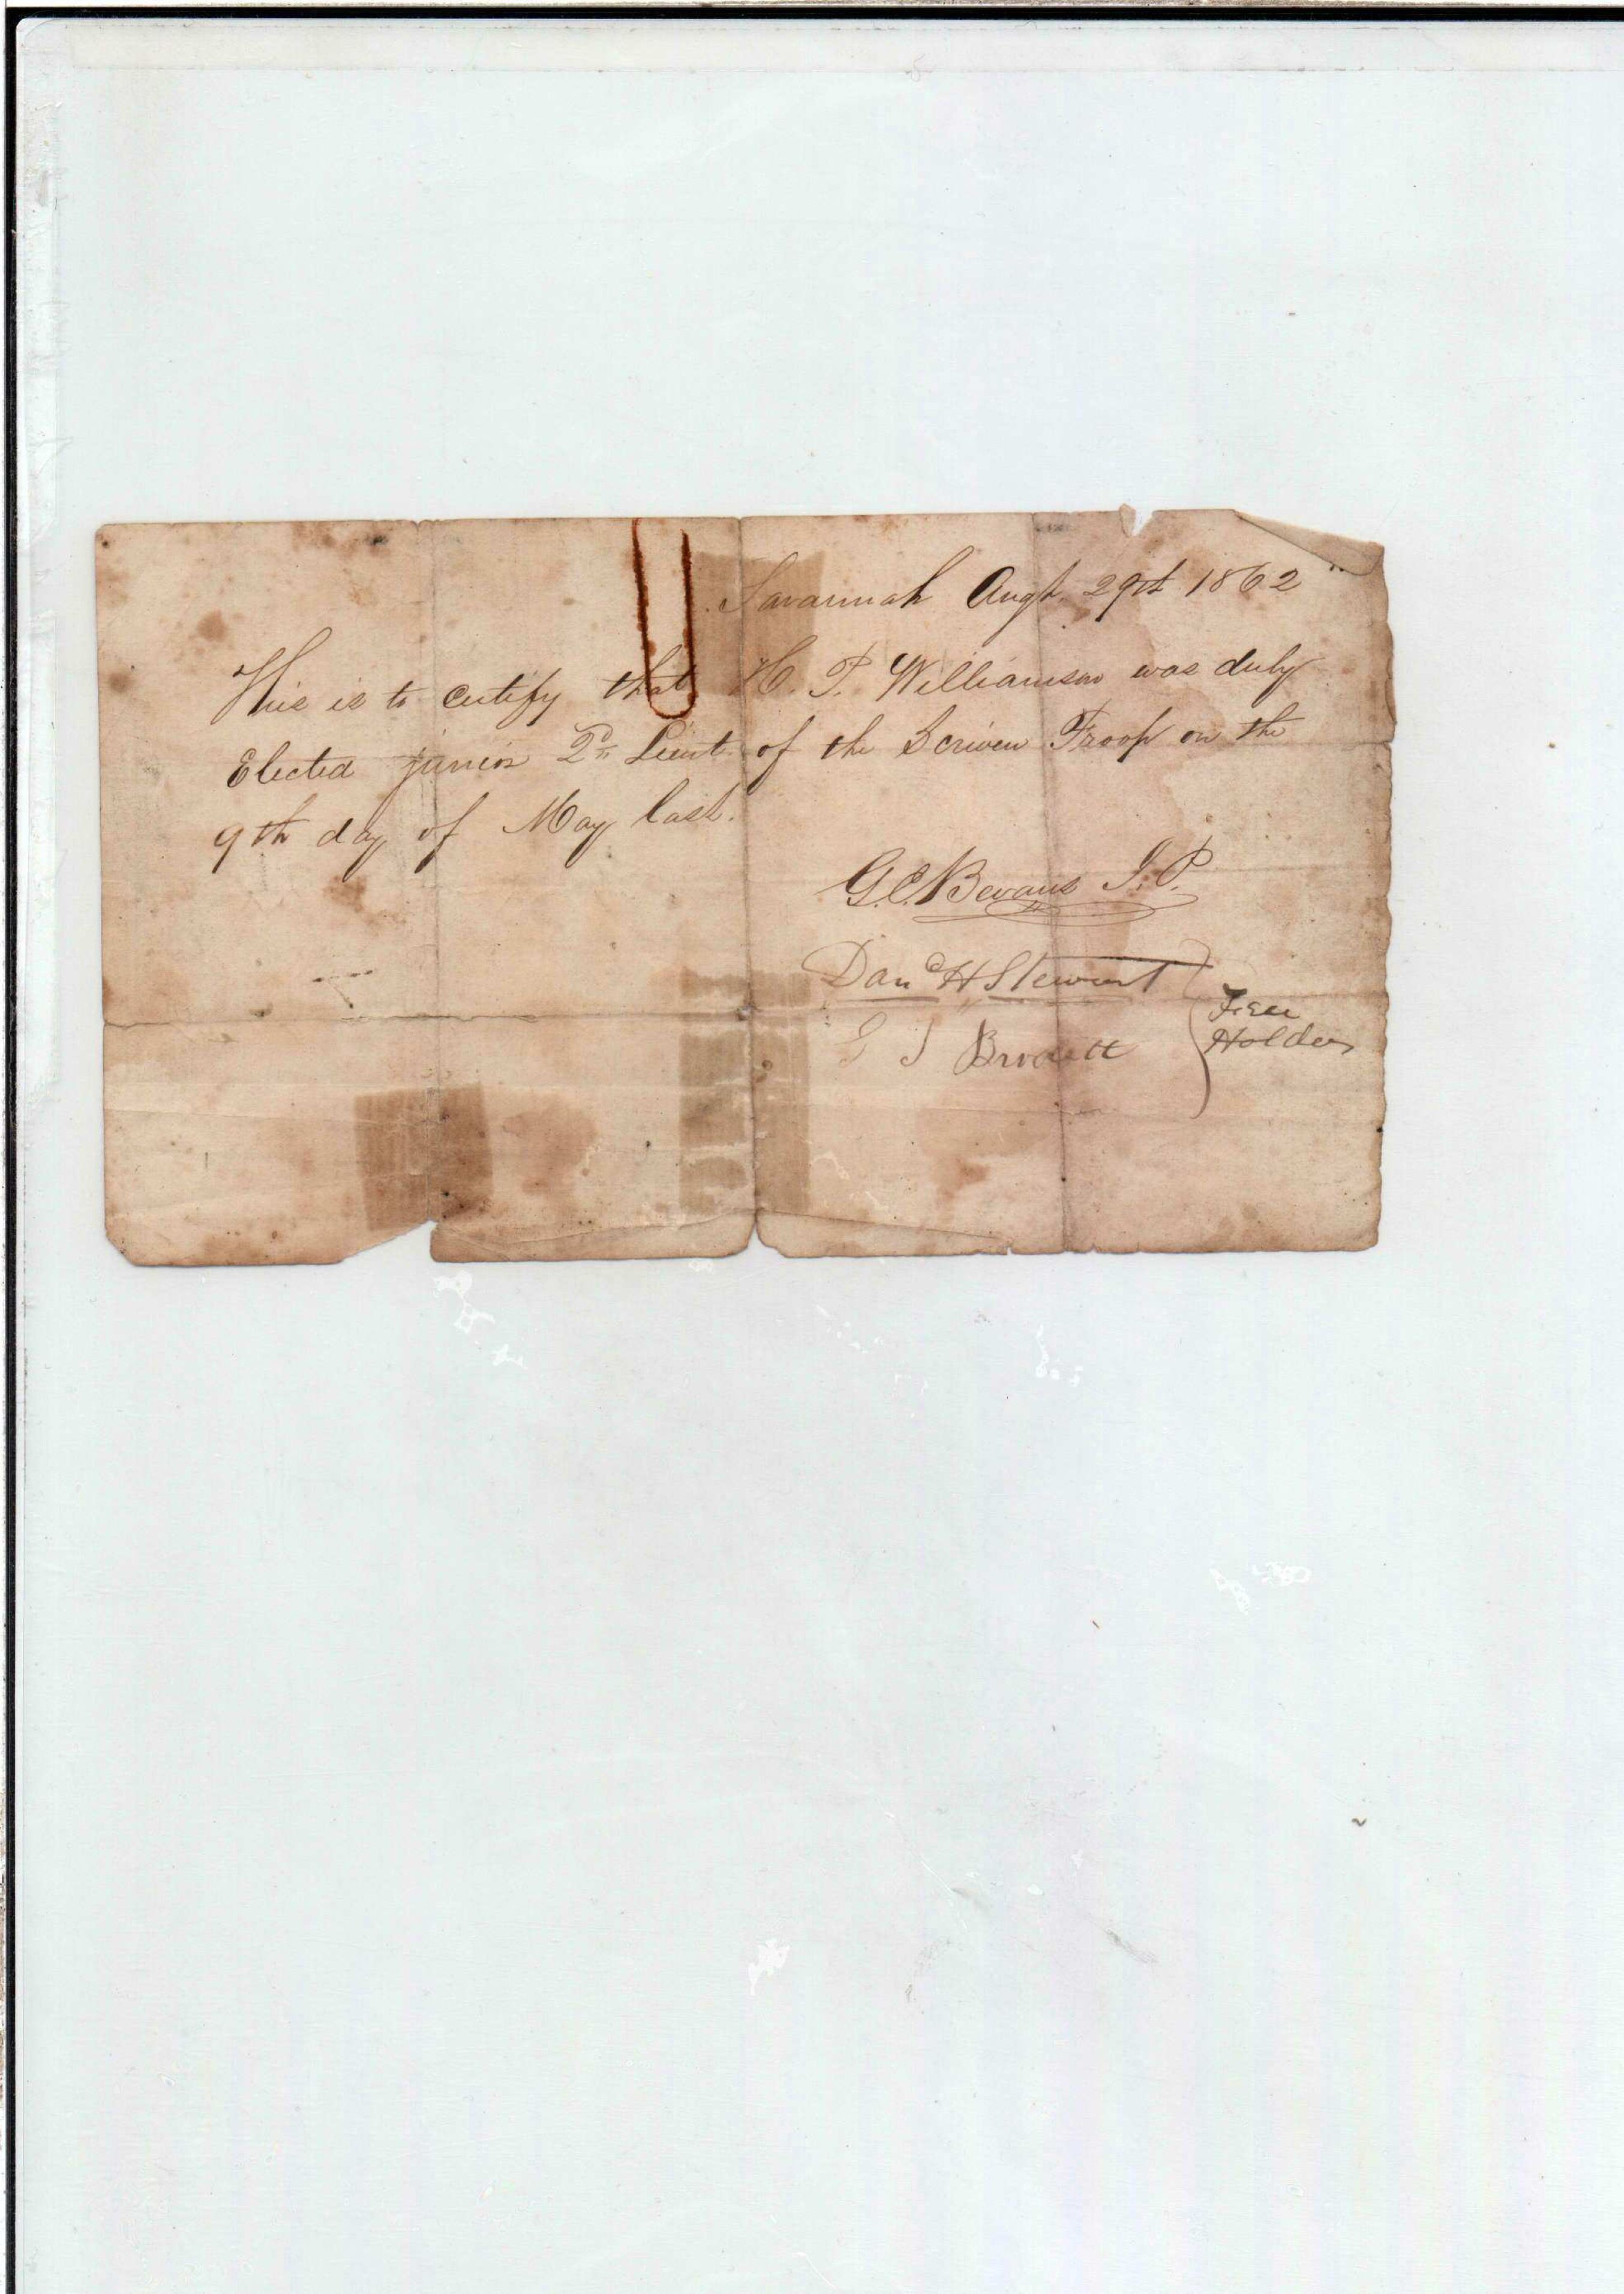 Savannah Augt. 29th 1862
This is to certify that H. P. Williamson was duly
Elected junior 2d Lieut. of the Scriven Troop on the
9th day of May last.
G.C. Bevans J.P.
Danl H Stewart
Free
Holders
G J